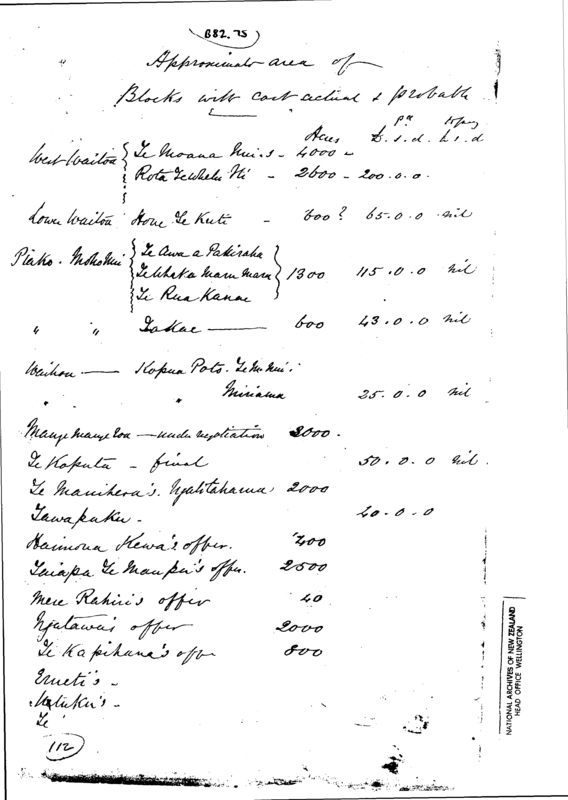 B82.75
Approximate area of
Blocks with cost actual & probable
Acres £. s. d. £ s. d
West Waitoa Te Moana Nui.s - 4000 -
Rota - 2600 - 200.0.0.
Lower Waitoa Hone Te - 600? 65.0.0 nil
Piako. Te Awa a Pakiraha
Te Whaka Maru Maru 1300 115.0.0 nil
Te Rua Kanae
" " 600 43.0.0 nil
Waihou Kopua Poto.
" " Miriama 25.0.0 nil
under negotiation 2000.
Te Koputu - final 50.0.0 nil.
Te Manihera's. 2000
Tawapuku - 40.0.0
Haimona Kewa's offer. 400
Taiapa Te offer. 2500
Mere Rahiri's offer 40
Ngatawa's offer 2000
Te Kapihana's offr 800
Erueti's -
Matuku's -
Te
112
NATIONAL ARCHIVES OF NEW ZEALAND
HEAD OFFICE WELLINGTON